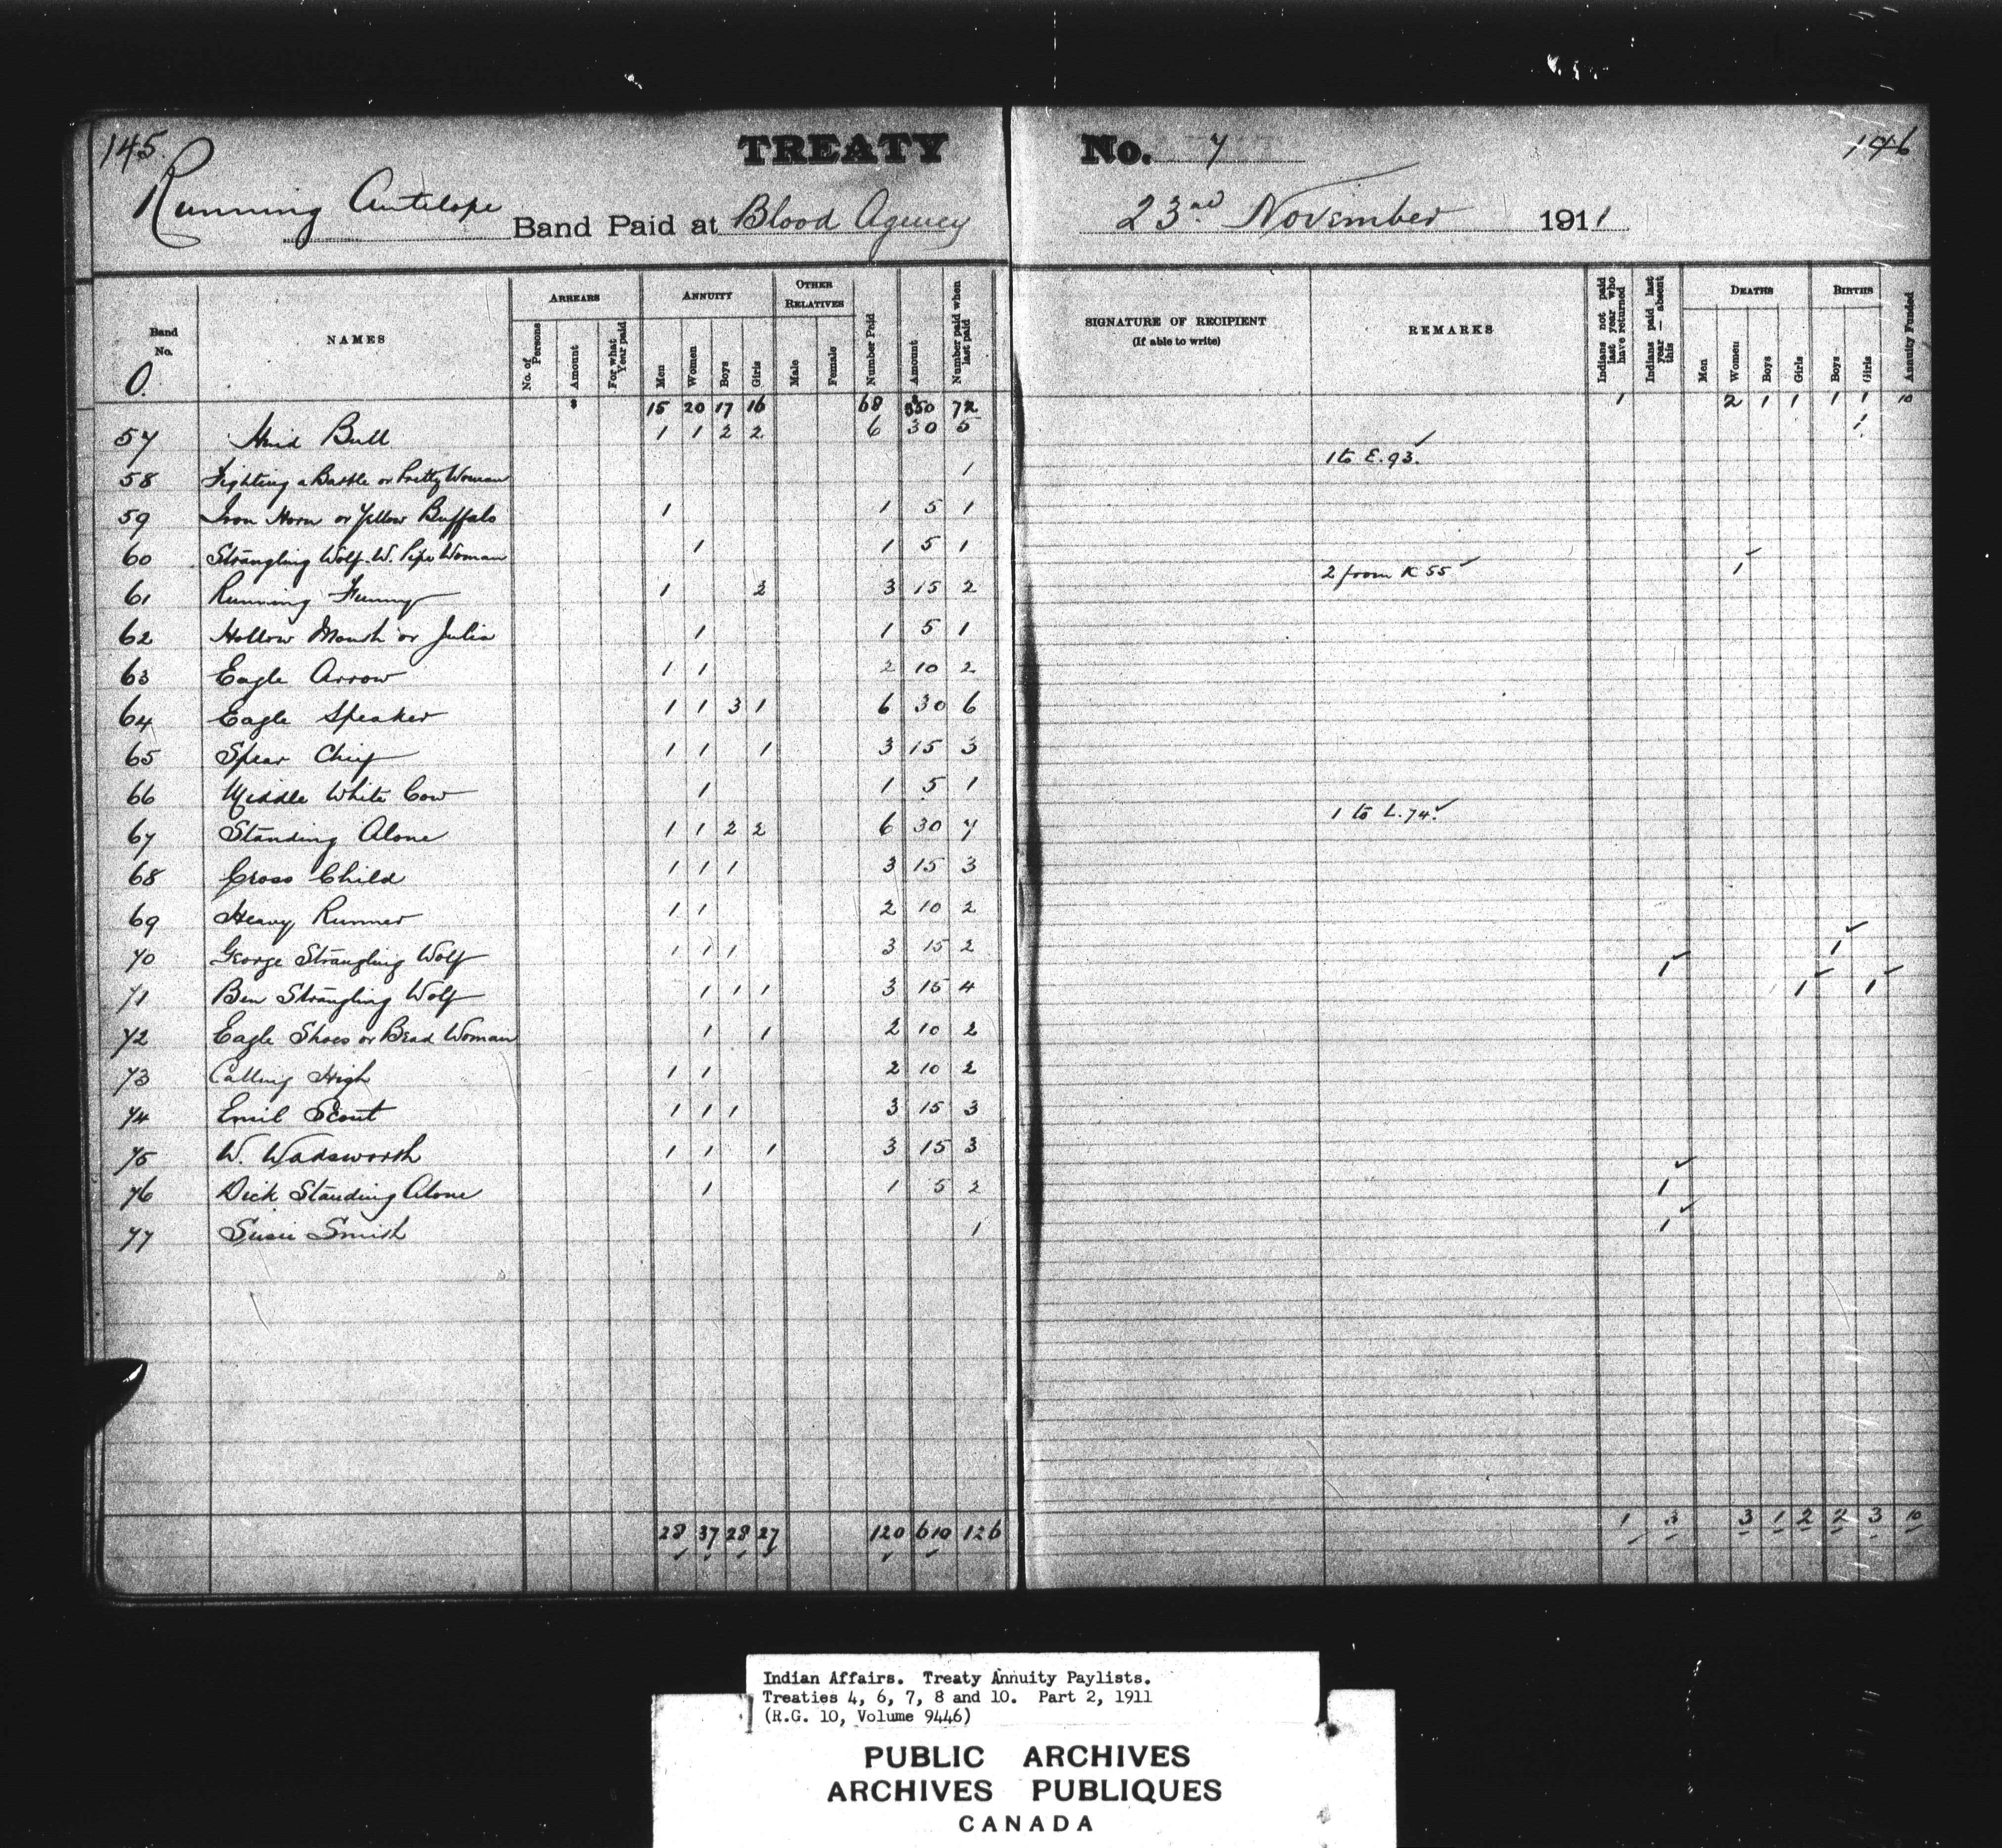 145.
TREATY No. 7
146
Running Antelope Band Paid at Blood Agency 23rd November 1911
Band No. NAMES ARREARS ANNUITY OTHER RELATIVES Number Paid Amount Number paid when last paid SIGNATURE OF RECIPIENT (If able to write) REMARKS Indians not paid last year who have returned Indians paid last year — absent this DEATHS BIRTHS Annuity Funded
O. No. of Persons Amount For what Year paid Men Women Boys Girls Male Female Men Women Boys Girls Boys Girls
$ 15 20 17 16 68 $ 350 72 1 2 1 1 1 1 10
57 Bull 1 1 2 2 6 30 5 1
58 Fighting a Battle or Pretty Woman 1 1 to E. 93. ✓
59 Iron Horn or Yellow Buffalo 1 1 5 1
60 Strangling Wolf. W. Pipe Woman 1 1 5 1
61 Running 1 2 3 15 2 2 from K 55 ✓ 1 ✓
62 Hollow Mouth or Julia 1 1 5 1
63 Eagle Arrow 1 1 2 10 2
64 Eagle Speaker 1 1 3 1 6 30 6
65 Spear Chief 1 1 1 3 15 3
66 Middle White Cow 1 1 5 1
67 Standing Alone 1 1 2 2 6 30 7 1 to L. 74. ✓
68 Cross Child 1 1 1 3 15 3
69 Heavy Runner 1 1 2 10 2
70 George Strangling Wolf 1 1 1 3 15 2 1 ✓
71 Ben Strangling Wolf 1 1 1 3 15 4 1 ✓ 1 ✓ 1 ✓
72 Eagle Shoes or Bead Woman 1 1 2 10 2
73 Calling High 1 1 2 10 2
74 Emil Scout 1 1 1 3 15 3
75 W. Wadsworth 1 1 1 3 15 3
76 Dick Standing Alone 1 1 5 2 1 ✓
77 Susie Smith 1 1 ✓
28 37 28 27 120 610 126 1 3 3 1 2 2 3 10
Indian Affairs. Treaty Annuity Paylists.
Treaties 4, 6, 7, 8 and 10. Part 2, 1911
(R.G. 10, Volume 9446)
PUBLIC ARCHIVES
ARCHIVES PUBLIQUES
CANADA